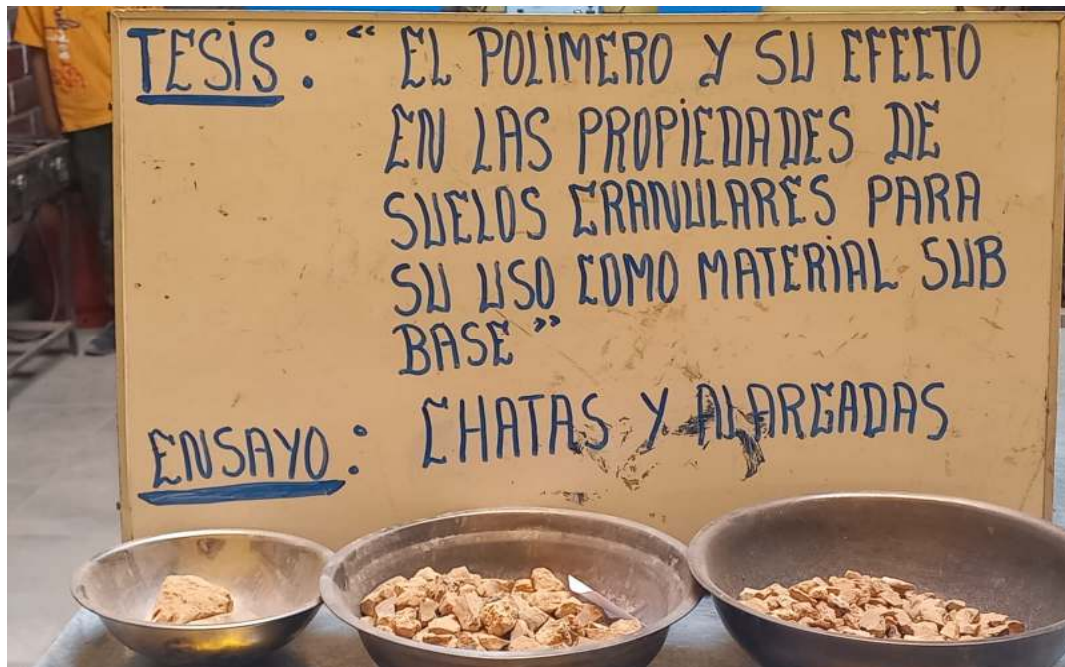 TESIS: “ EL POLIMERO Y SU EFECTO
EN LAS PROPIEDADES DE
SUELOS GRANULARES PARA
SU USO COMO MATERIAL SUB
BASE ”
ENSAYO: CHATAS Y ALARGADAS